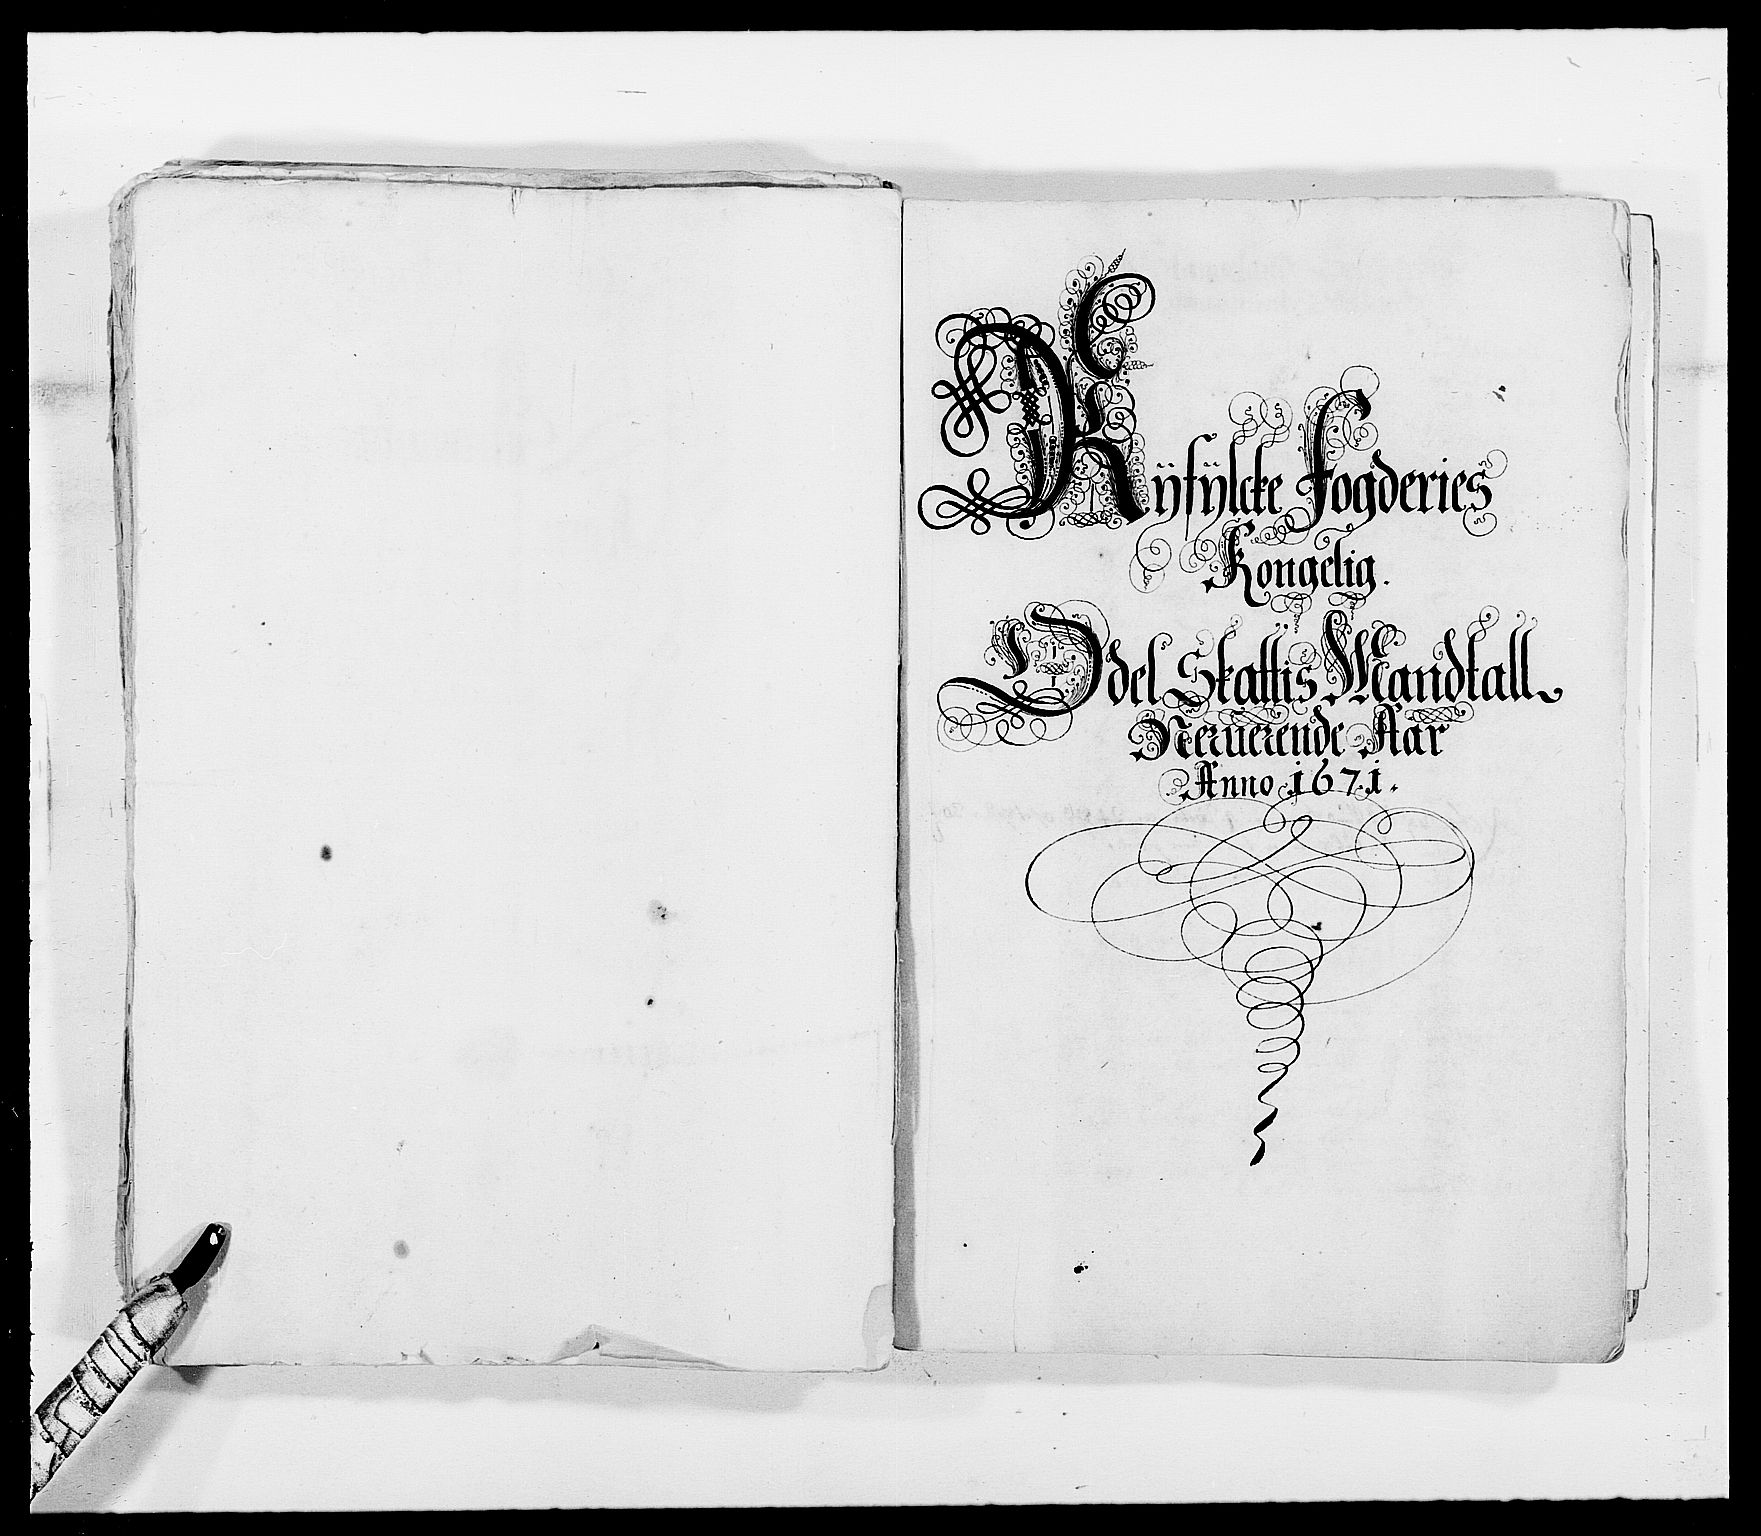 Rÿfÿlcke Fogderies
Kongelig.
Odel Skattis Mandtall
Neruerende Aar
Anno 1671.